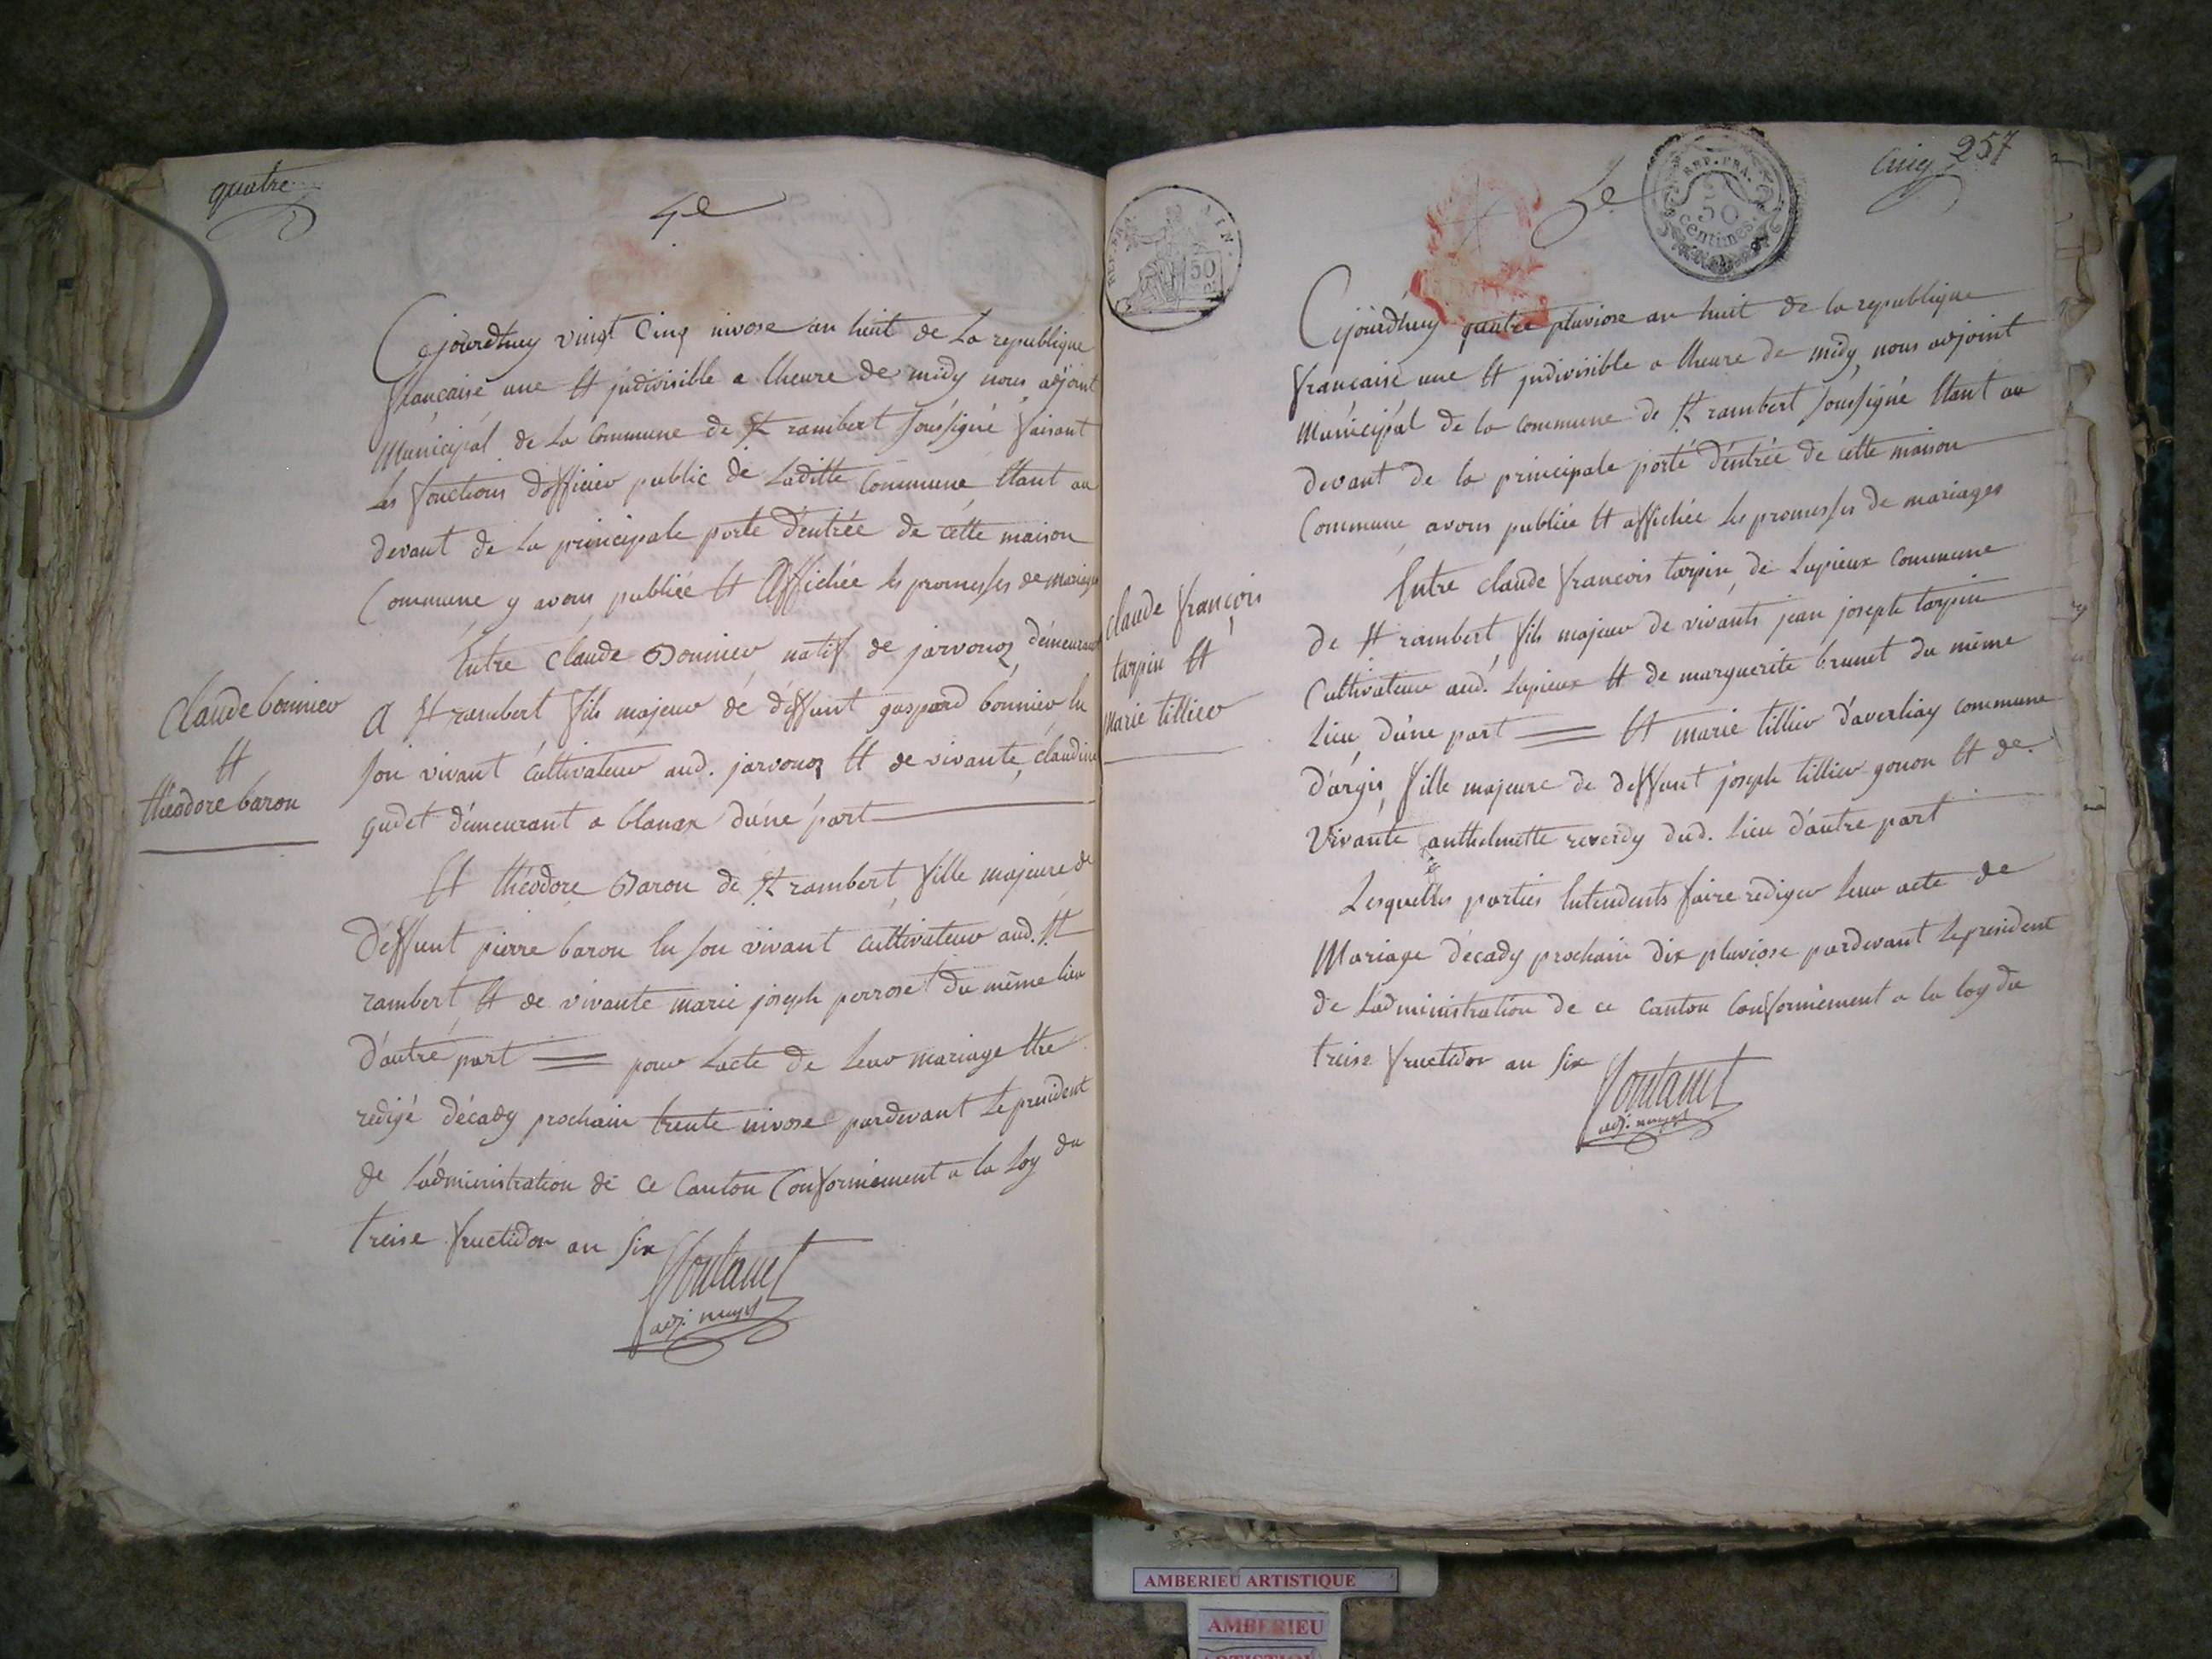 quatre
4e
Cejourdhuy vingt Cinq nivose an huit de La republique
francaise une Et jndivisible a lheure de midy nous adjoint
Municipal de La Commune de St rambert soussigné faisant
Les fonctions dofficier public de Laditte Commune Etant au
devant de La principale porte dentrée de cette maison
Commune y avons publiée Et Affichée les promesses de mariages
Entre Claude Bonnier natif de jarvonoz demeurant
A St rambert fils majeur de deffunt gaspard bonnier En
son vivant cultivateur aud. jarvonoz Et de vivante claudine
gudet demeurant a blanaz dune part
Et théodore Baron de St rambert fille majeure de
deffunt pierre baron En son vivant cultivateur aud. St
rambert Et de vivante marie joseph perroset du même lieu
dautre part = pour Lacte de Leur mariage Etre
redigé décady prochain trente nivose pardevant Le president
de Ladministration de ce Canton Conformement a la Loy du
treise fructidor an six
adj. mupal
Claude bonnier
Et
théodore baron
REP. FRA. AIN.
50
5e
REP. FRA.
50
Centimes
Cinq 257
Cejourdhuy quatre pluviose an huit de la republique
française une Et jndivisible a lheure de midy nous adjoint
Municipal de la commune de St rambert soussigné Etant au
devant de la principale porte dentrée de cette maison
Commune avons publiée Et affichée les promesses de mariages
Entre claude francois tarpin de Lupieux commune
de St rambert fils majeur de vivants jean joseph tarpin
Cultivateur aud. Lupieux Et de marguerite brunet du même
Lieu dune part = Et marie tillier daverliay commune
dargis fille majeure de deffunt joseph tillier gonon Et de
Vivante anthelmette reverdy dud. lieu dautre part
Lesquelles parties Entendents faire rediger leur acte de
Mariage décady prochain dix pluviose pardevant le president
de Ladministration de ce canton Conformement a la loy du
treise fructidor an six
adj. mupal
claude françois
tarpin Et
marie tillier
AMBERIEU ARTISTIQUE
AMBERIEU
ARTISTIQUE